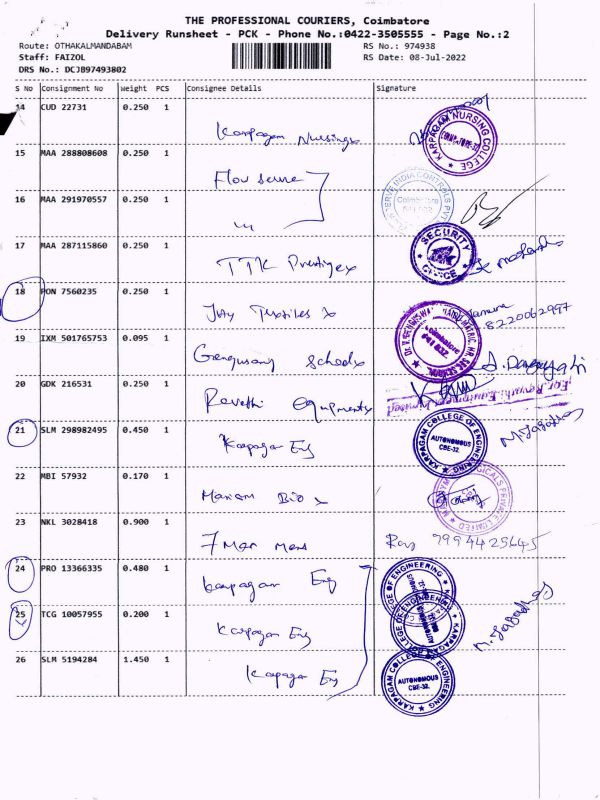 THE PROFESSIONAL COURIERS, Coimbatore
Delivery Runsheet - PCK - Phone No.:0422-3505555 - Page No.:2
Route: OTHAKALMANDABAM RS No.: 974938
Staff: FAIZOL RS Date: 08-Jul-2022
DRS No.: DCJB97493802
S No Consignment No Weight PCS Consignee Details Signature
14 CUD 22731 0.250 1
Karpagam Nursing
KARPAGAM NURSING COLLEGE
15 MAA 288808608 0.250 1
Flow serve
INDIA CONTROLS PVT
Coimbatore
641 032
16 MAA 291970557 0.250 1
17 MAA 287115860 0.250 1
TTK Prestige
SECURITY
OFFICE
18 PON 7560235 0.250 1
Textiles
8220062997
19 IXM 501765753 0.095 1
School
Coimbatore
641 032
MATRIC. HR. SEC. SCHOOL
20 GDK 216531 0.250 1
Revathi equipments
For Revathi Equipment Limited
21 SLM 298982495 0.450 1
Karpagam Eng
KARPAGAM COLLEGE OF ENGINEERING
AUTONOMOUS
CBE-32.
22 MBI 57932 0.170 1
Bio
PRIVATE LIMITED
23 NKL 3028418 0.900 1
7 Mar
24 PRO 13366335 0.480 1
Karpagam Eng
COLLEGE OF ENGINEERING
25 TCG 10057955 0.200 1
Karpagam Eng
KARPAGAM COLLEGE OF ENGINEERING
26 SLM 5194284 1.450 1
Karpagam Eng
KARPAGAM COLLEGE OF ENGINEERING
AUTONOMOUS
CBE-32.